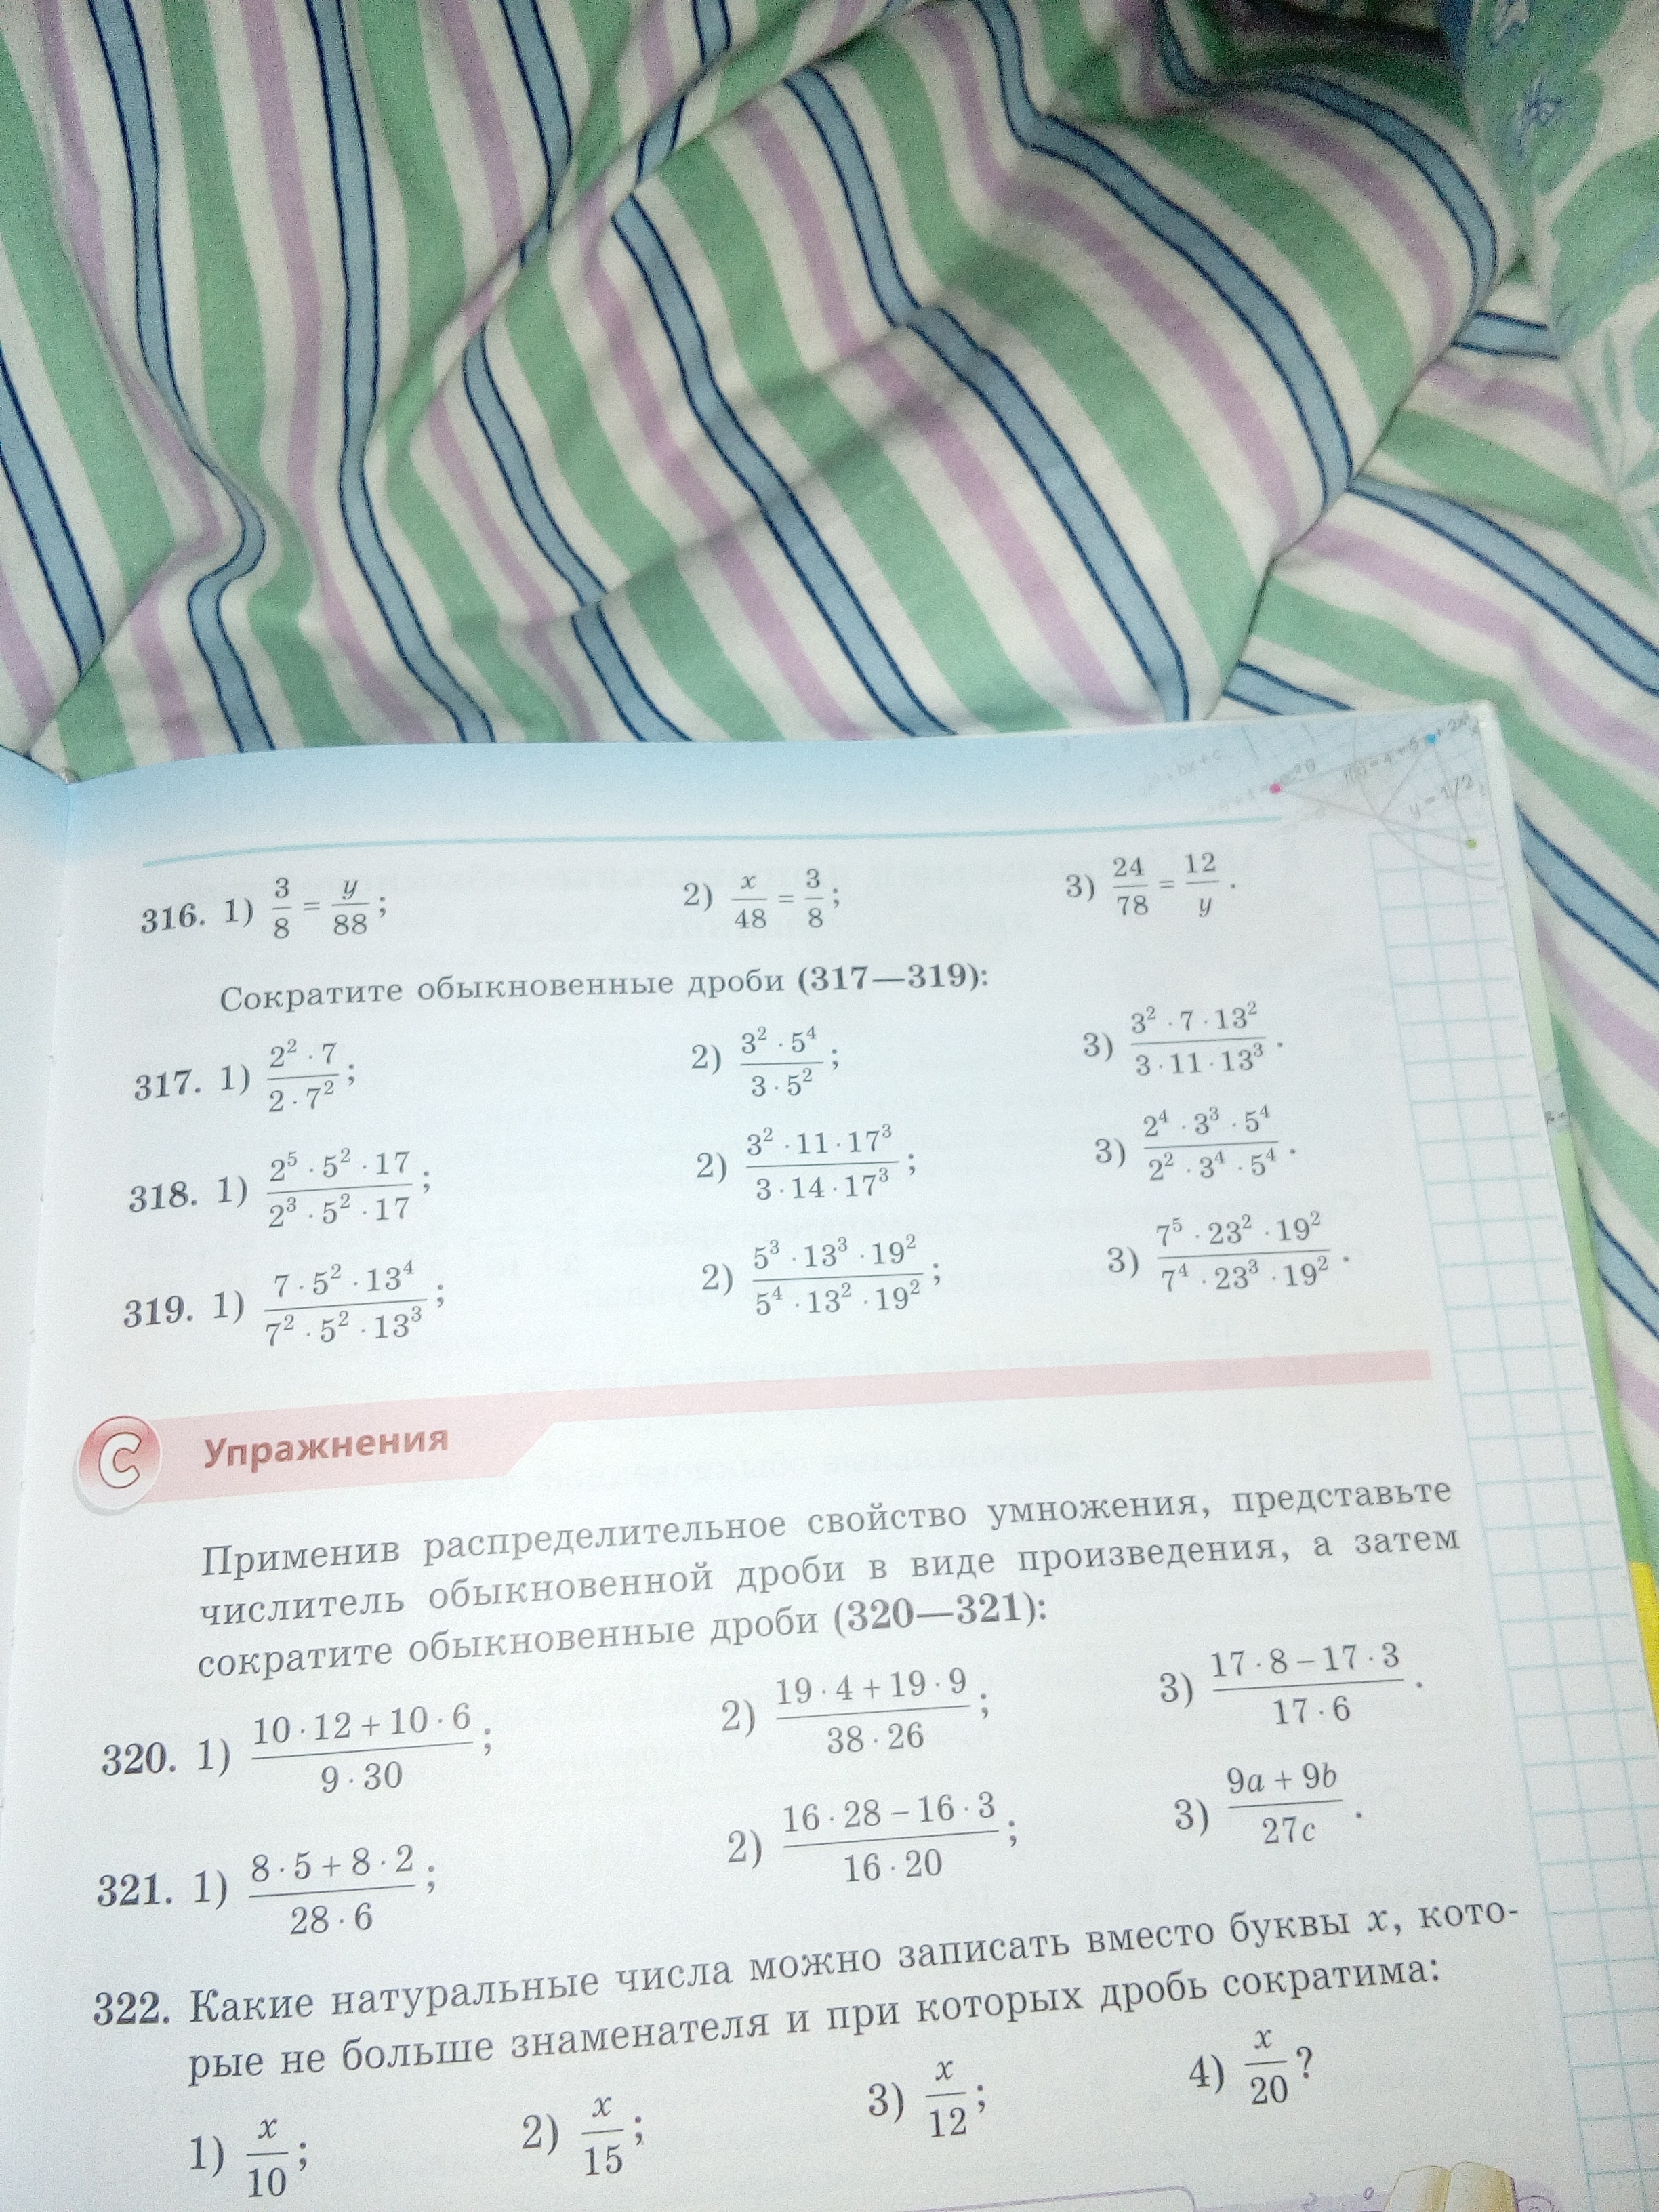 y = 1/2
316. 1) 3/8 = y/88; 2) x/48 = 3/8; 3) 24/78 = 12/y.
Сократите обыкновенные дроби (317—319):
317. 1) (2² · 7)/(2 · 7²); 2) (3² · 5⁴)/(3 · 5²); 3) (3² · 7 · 13²)/(3 · 11 · 13³).
318. 1) (2⁵ · 5² · 17)/(2³ · 5² · 17); 2) (3² · 11 · 17³)/(3 · 14 · 17³); 3) (2⁴ · 3³ · 5⁴)/(2² · 3⁴ · 5⁴).
319. 1) (7 · 5² · 13⁴)/(7² · 5² · 13³); 2) (5³ · 13³ · 19²)/(5⁴ · 13² · 19²); 3) (7⁵ · 23² · 19²)/(7⁴ · 23³ · 19²).
C Упражнения
Применив распределительное свойство умножения, представьте
числитель обыкновенной дроби в виде произведения, а затем
сократите обыкновенные дроби (320—321):
320. 1) (10 · 12 + 10 · 6)/(9 · 30); 2) (19 · 4 + 19 · 9)/(38 · 26); 3) (17 · 8 – 17 · 3)/(17 · 6).
321. 1) (8 · 5 + 8 · 2)/(28 · 6); 2) (16 · 28 – 16 · 3)/(16 · 20); 3) (9a + 9b)/(27c).
322. Какие натуральные числа можно записать вместо буквы x, кото-
рые не больше знаменателя и при которых дробь сократима:
1) x/10; 2) x/15; 3) x/12; 4) x/20?